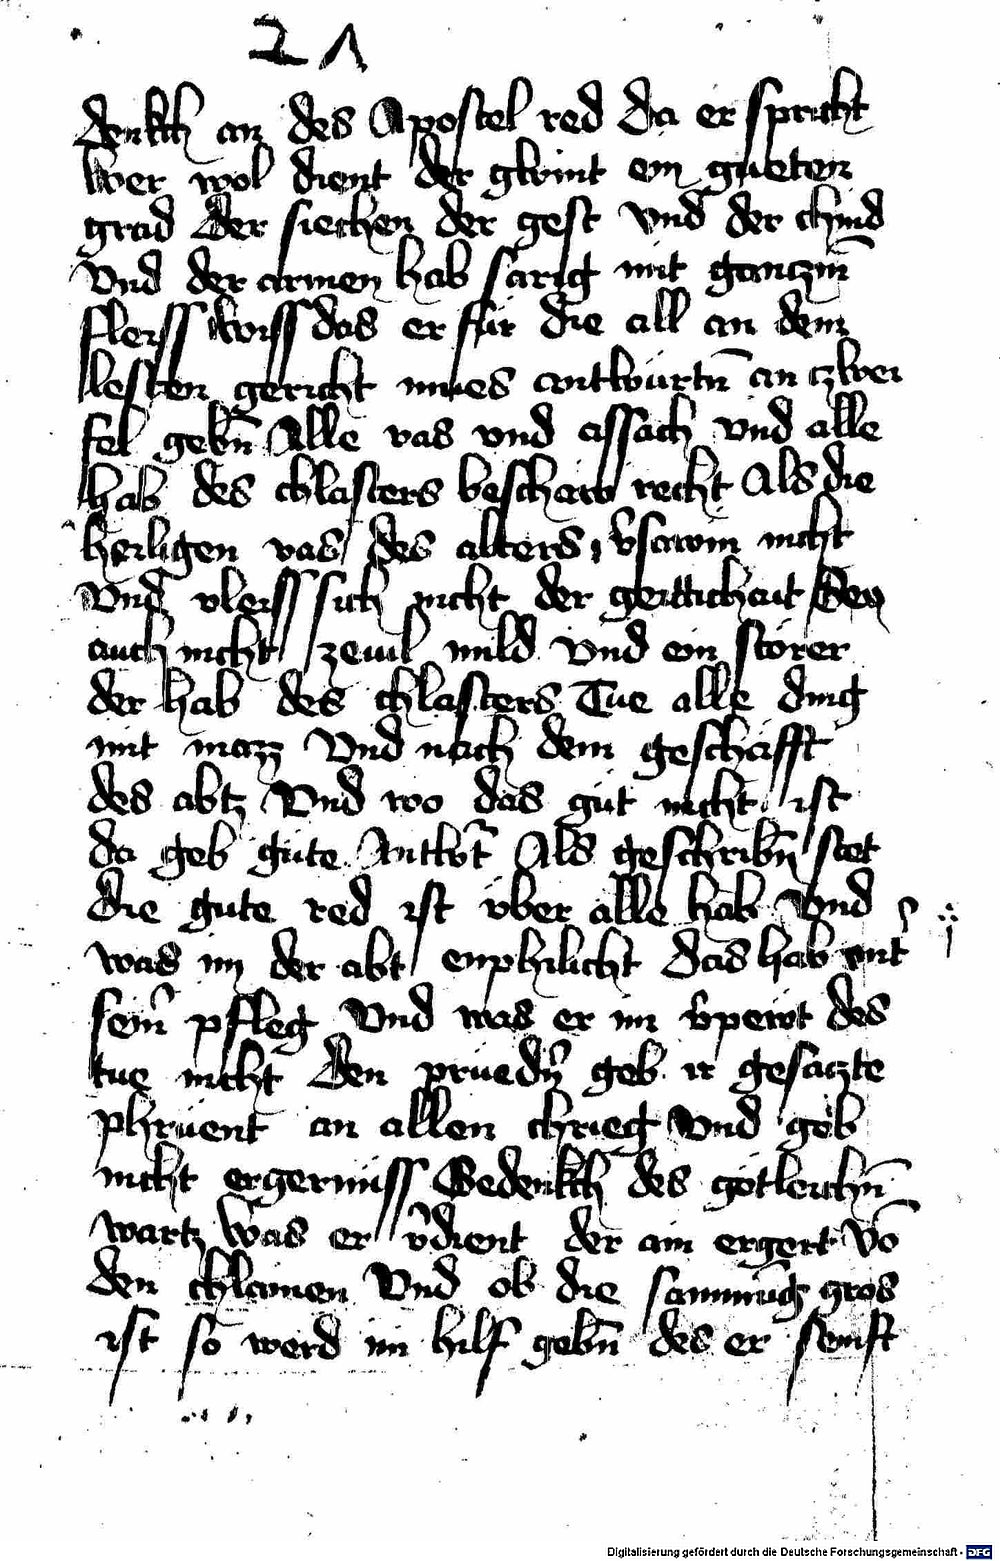 21
denkch an des Apostel red da er spricht
wer wol dient der gbint ein gueten
grad Der siechen der gest vnd der chind
vnd der armen hab sarig mit ganczm̄
fleiss wiss das er für die all an dem
lesten gericht mues antburtn̄ an zbei
fel gebn̄ Alle vas vnd assach vnd alle
hab des chlasters beschaw recht Als die
heiligen vas des alters v̄sawm nicht
vnd vleiss sich nicht der geittichait Sey
auch nicht zeuil mild vnd ein störer
der hab des chlasters Tue alle ding
mit mazz vnd nach dem geschäfft
des abtz vnd wo das gut nicht ist
da geb gute Antbt̄ Als geschribn̄ stet
die gute red ist vber alle hab vnd
was im der abt enphilicht das hab mit
sein̄ pfleg vnd was er im v̄pewt des
tue nicht Den pruedn̄ geb er gesaczte
phruent an allen chrieg vnd geb
nicht ergernüss Gedenkch des gotleichn̄
wartz was er v̄dient der ain ergert vō
den chlainen vnd ob die sammūg gros
ist so werd im hilf gebn̄ des er senft
Digitalisierung gefördert durch die Deutsche Forschungsgemeinschaft - DFG